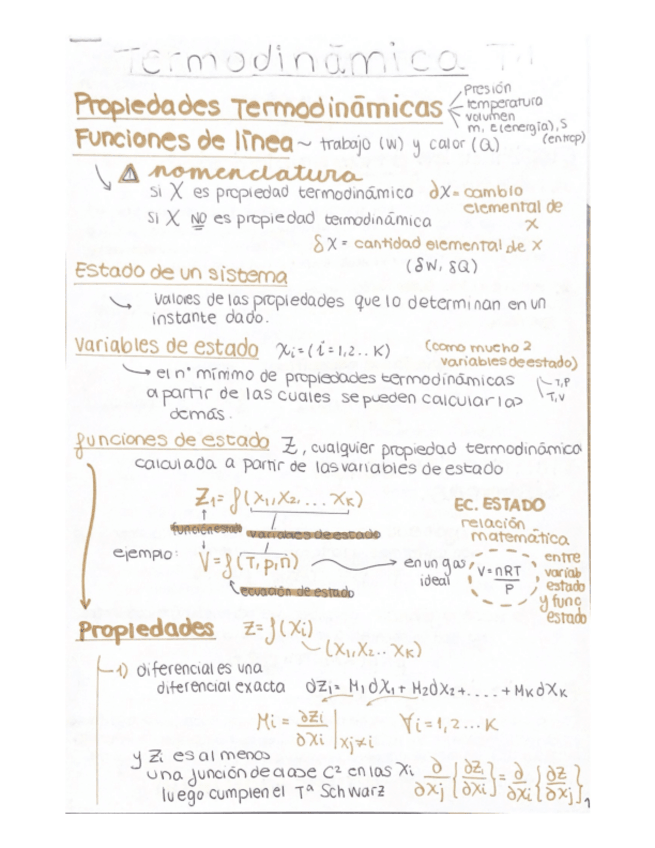 Termodinámica T.1
Propiedades Termodinámicas
Presión
temperatura
volumen
m, E(energía), S
(entrop)
Funciones de línea ~ trabajo (W) y calor (Q)
⚠ nomenclatura
si X es propiedad termodinámico ∂X = cambio
elemental de
x
si X NO es propiedad termodinámica
δX = cantidad elemental de x
(δW, δQ)
Estado de un sistema
valores de las propiedades que lo determinan en un
instante dado.
Variables de estado xi = (i = 1,2.. K) (como mucho 2
variables de estado)
el nº mínimo de propiedades termodinámicas
T,P
T,V
a partir de las cuales se pueden calcular las
demás.
funciones de estado Z, cualquier propiedad termodinámica
calculada a partir de las variables de estado
Z1 = f(x1, x2, ... xK)
función estado variables de estado
ejemplo: V = f(T, p, n)
ecuación de estado
en un gas
ideal
EC. ESTADO
relación
matemática
V = nRT/P
entre
variab
estado
y func
estado
Propiedades Z = f(xi)
(x1, x2.. xK)
1) diferencial es una
diferencial exacta ∂Z1 = M1∂x1 + M2∂x2 + .... + MK∂xK
Mi = ∂Zi/∂xi | xj≠i ∀i = 1,2... K
y Zi es al menos
una función de clase C² en las xi ∂/∂xj {∂Zi/∂xi} = ∂/∂xi {∂Z/∂xj}
luego cumplen el Tª Schwarz
1